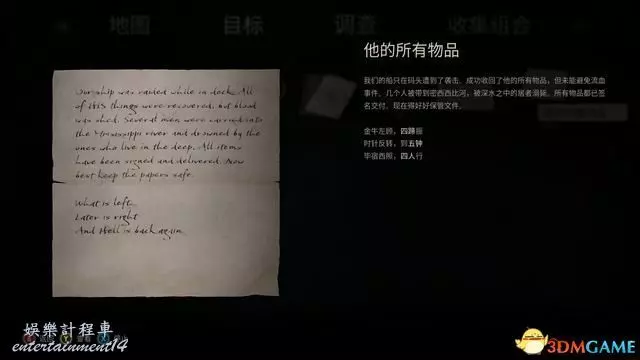 地图
目标
调查
收集组合
Our ship was raided while in dock. All
of HIS things were recovered, but blood
was shed. Several men were carried into
the Mississippi river and drowned by the
ones who live in the deep. All items
have been signed and delivered. Now
best keep the papers safe.
What is left,
Later is right
And Hell is back again
他的所有物品
我们的船只在码头遭到了袭击。成功收回了他的所有物品，但未能避免流血
事件。几个人被带到密西西比河，被深水之中的居者溺毙。所有物品都已签
名交付。现在得好好保管文件。
金牛左顾，四蹄振
时针反转，到五钟
毕宿西照，四人行
娛樂計程車
entertainment14
3DMGAME